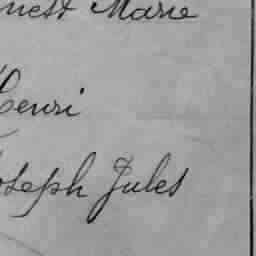 nest Marie
Henri
oseph Jules